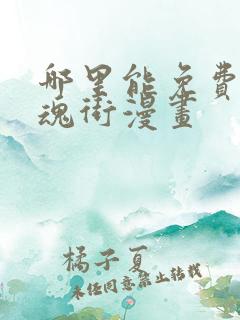 哪里能免費
魂街漫畫
橘子夏
未经同意禁止转载